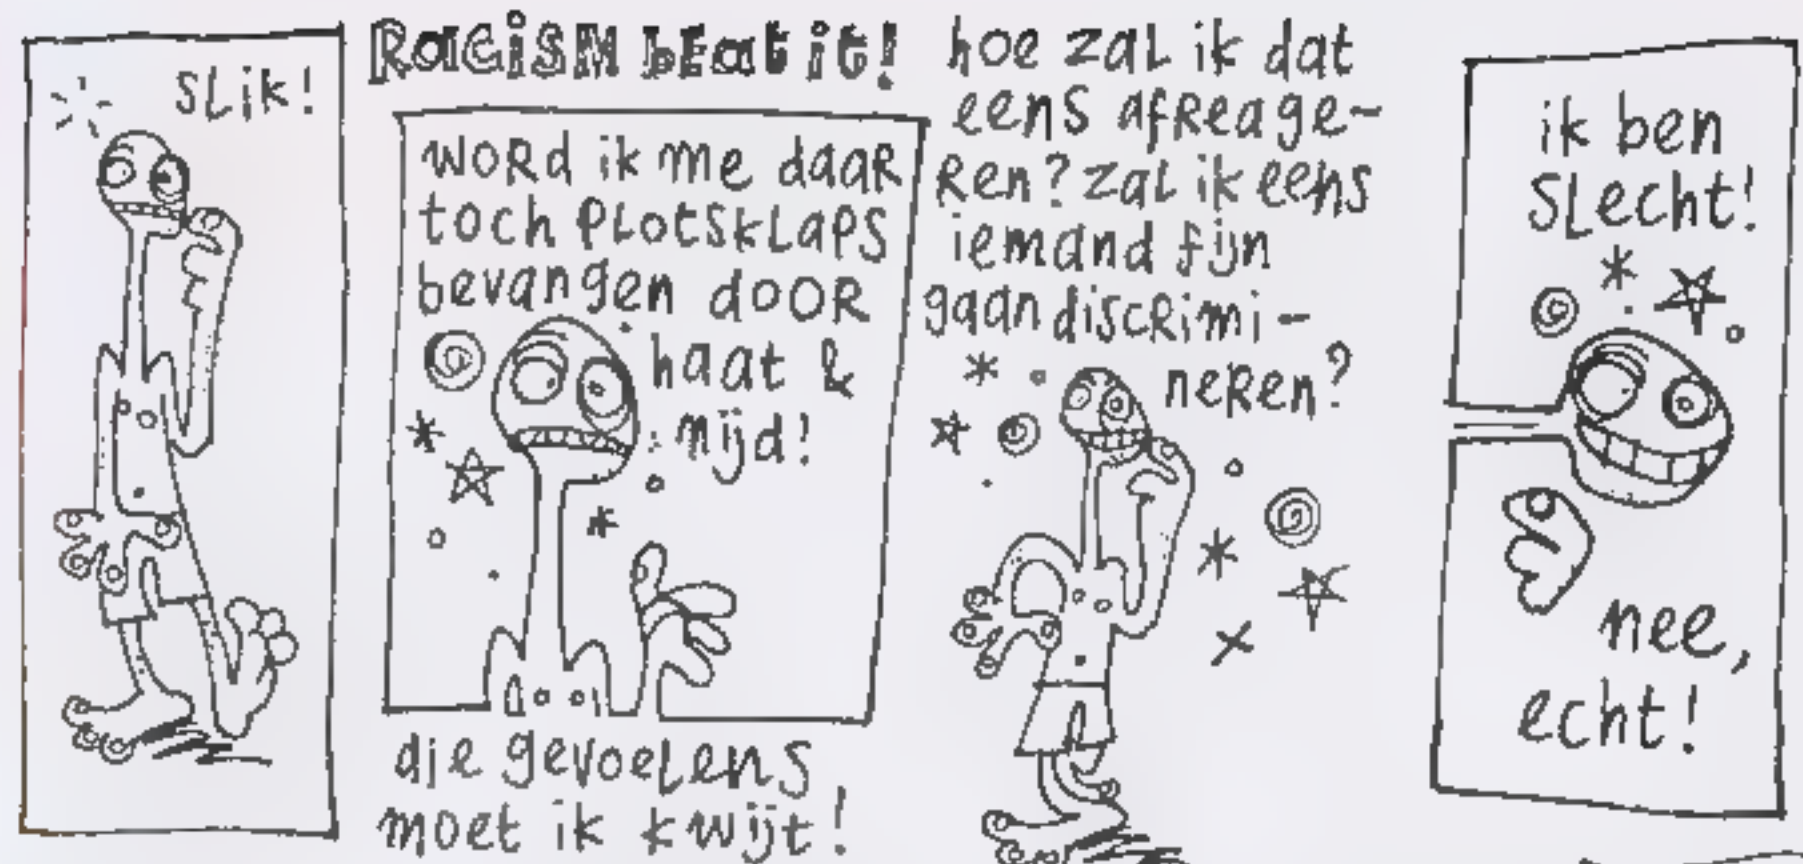 SLik!
RaciSM bEat it!
WORD ik me daaR
toch PLotSkLaPS
bevangen dooR
haat &
nijd!
die gevoelens
moet ik kwijt!
hoe zaL ik dat
eenS afReage-
Ren? zaL ik eens
iemand fijn
gaan discRimi-
neRen?
ik ben
SLecht!
nee,
echt!